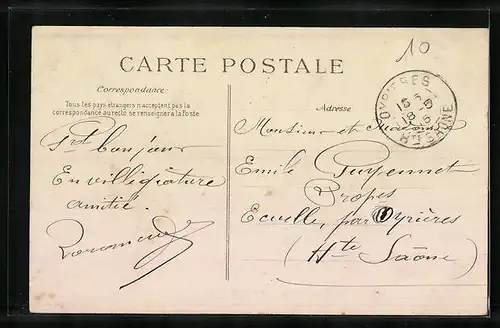 10
CARTE POSTALE
Correspondance:
Tous les pays étrangers n'acceptent pas la
correspondance au recto, se renseigner à la Poste
Adresse
OYRIÈRES
Hte SAÔNE
bonjour
En villégiature
amitié.
Monsieur et Madame
Emile
Propes
Ecuelle, par Oyrières
(Hte Saône)